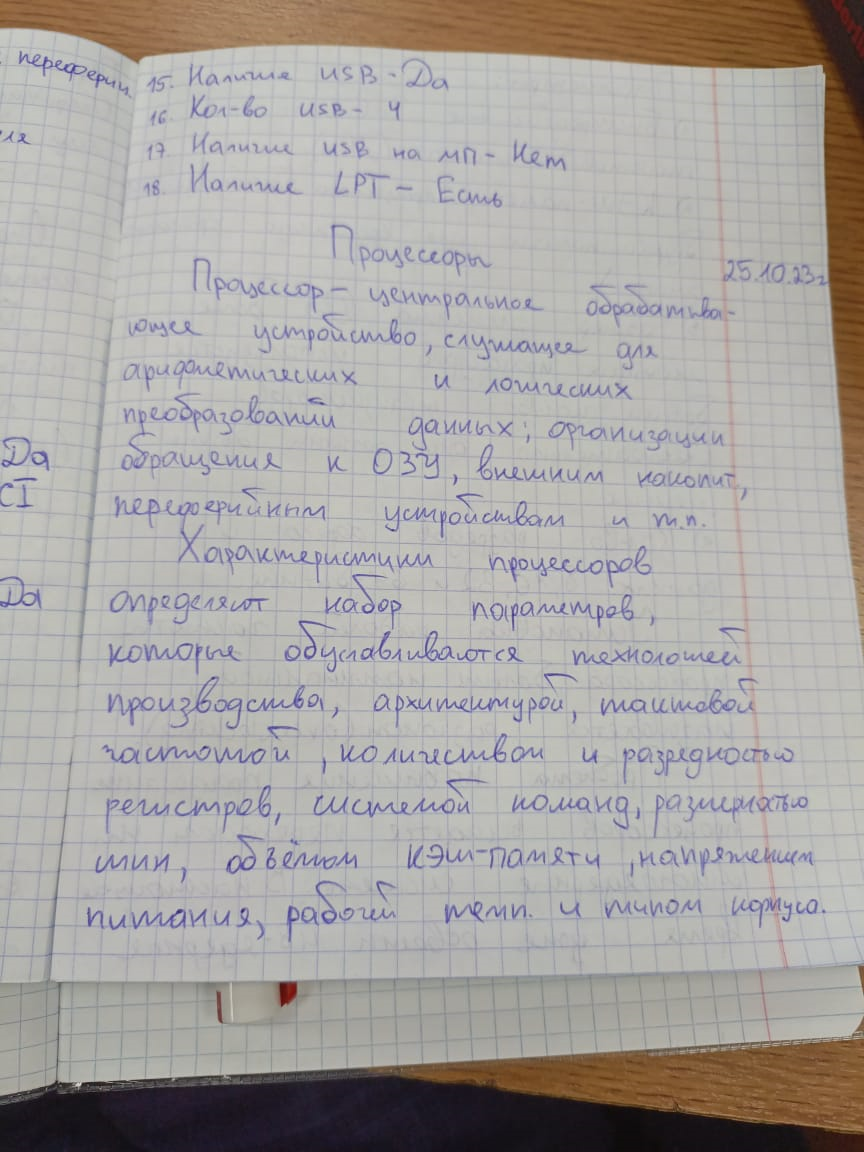 переферии
ля
Да
CI
Да
15. Наличие USB - Да
16. Кол-во USB - 4
17. Наличие USB на МП - Нет
18. Наличие LPT - Есть
Процессоры
25.10.23г
Процессор - центральное обрабатыва-
ющее устройство, служащее для
арифметических и логических
преобразований данных; организации
обращения к ОЗУ, внешним накопит,
переферийным устройствам и т.п.
Характеристики процессоров
определяют набор параметров,
которые обуславливаются технологией
производства, архитектурой, тактовой
частотой, количеством и разрядностью
регистров, системой команд, разрядностью
шин, объёмом кэш-памяти, напряжением
питания, рабочей темп. и типом корпуса.